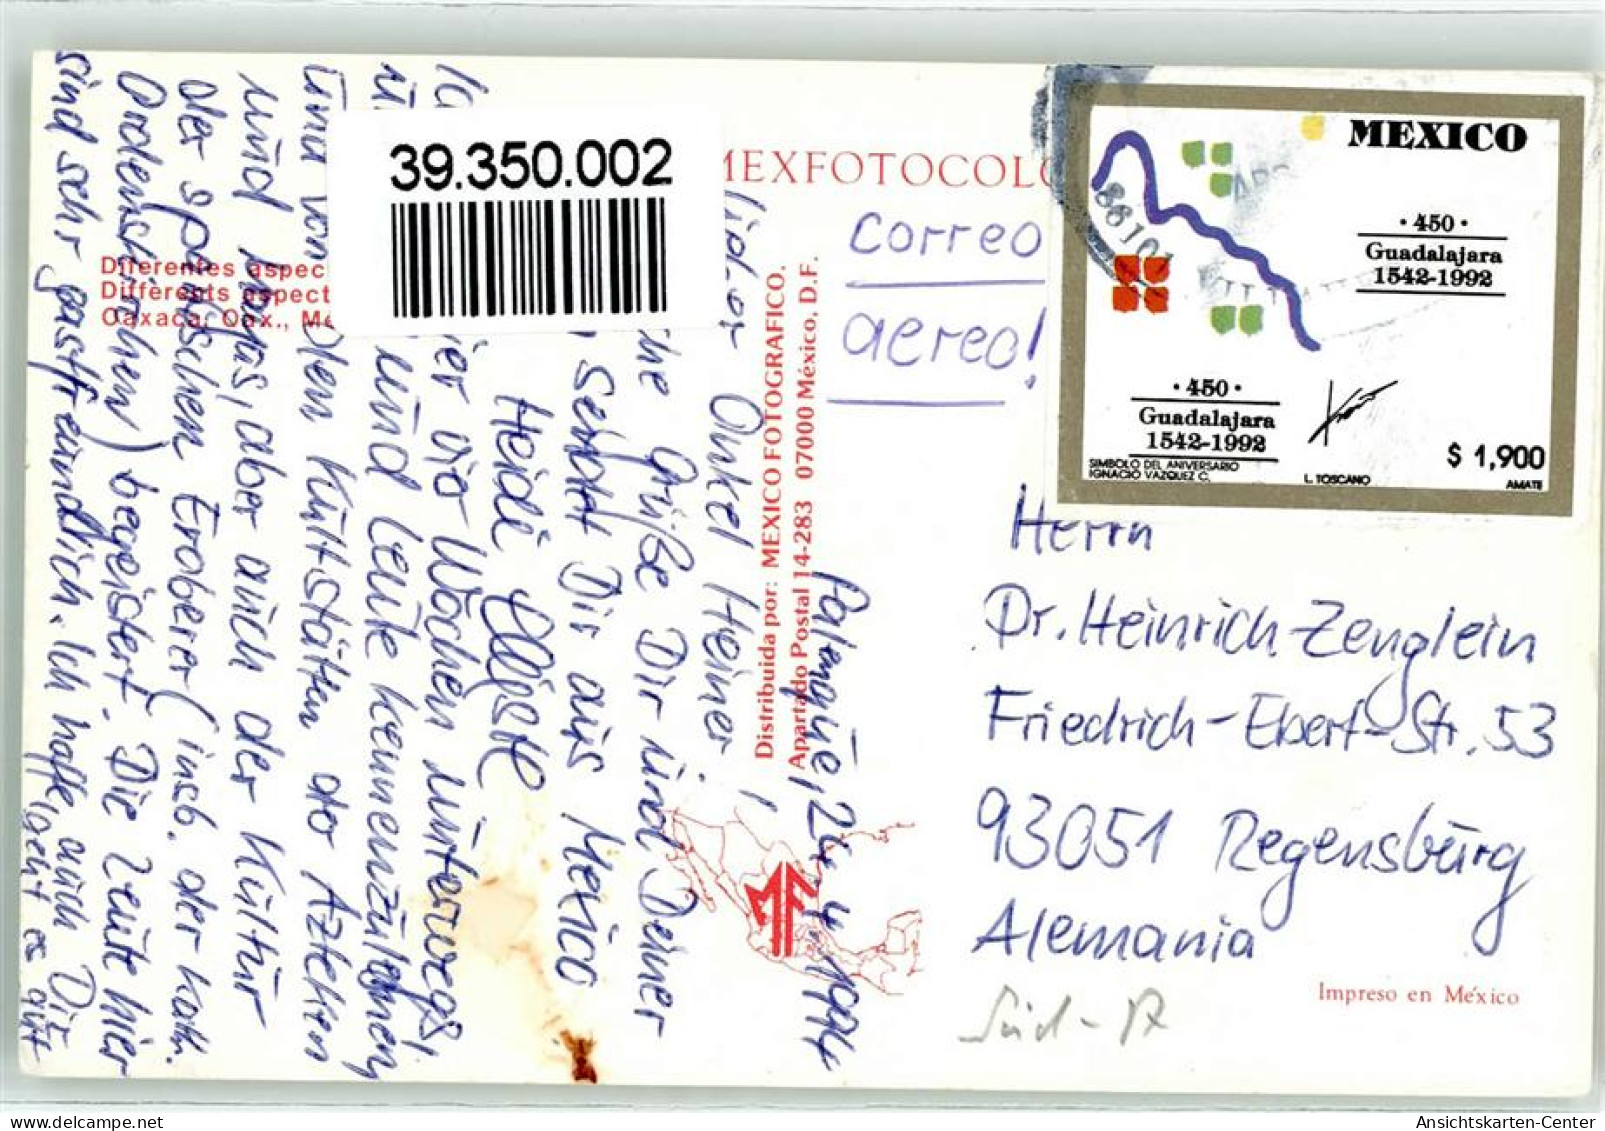 Palenque, 24.4.1994
Lieber Onkel Heiner,
Grüße Dir und Deiner
sendet Dir aus Mexico
Heidi
vier Wochen unterwegs,
und Leute kennenzulernen
von den Kultstätten der Azteken
und Mayas, aber auch der Kultur
der spanischen Eroberer (insb. der kath.
Ordenskirchen) begeistert. Die Leute hier
sind sehr gastfreundlich. Ich hoffe, auch Dir
geht es gut
39.350.002
MEXFOTOCOLO
Diferentes aspec
Differents aspect
Oaxaca, Oax., Mé
Distribuida por: MEXICO FOTOGRAFICO.
Apartado Postal 14-283 07000 México, D.F.
correo
aereo!
MEXICO
· 450 ·
Guadalajara
1542-1992
· 450 ·
Guadalajara
1542-1992
SIMBOLO DEL ANIVERSARIO
IGNACIO VAZQUEZ C.
L. TOSCANO
$ 1,900
AMATE
Herrn
Dr. Heinrich Zenglein
Friedrich-Ebert-Str. 53
93051 Regensburg
Alemania
Impreso en México
Ansichtskarten-Center
delcampe.net